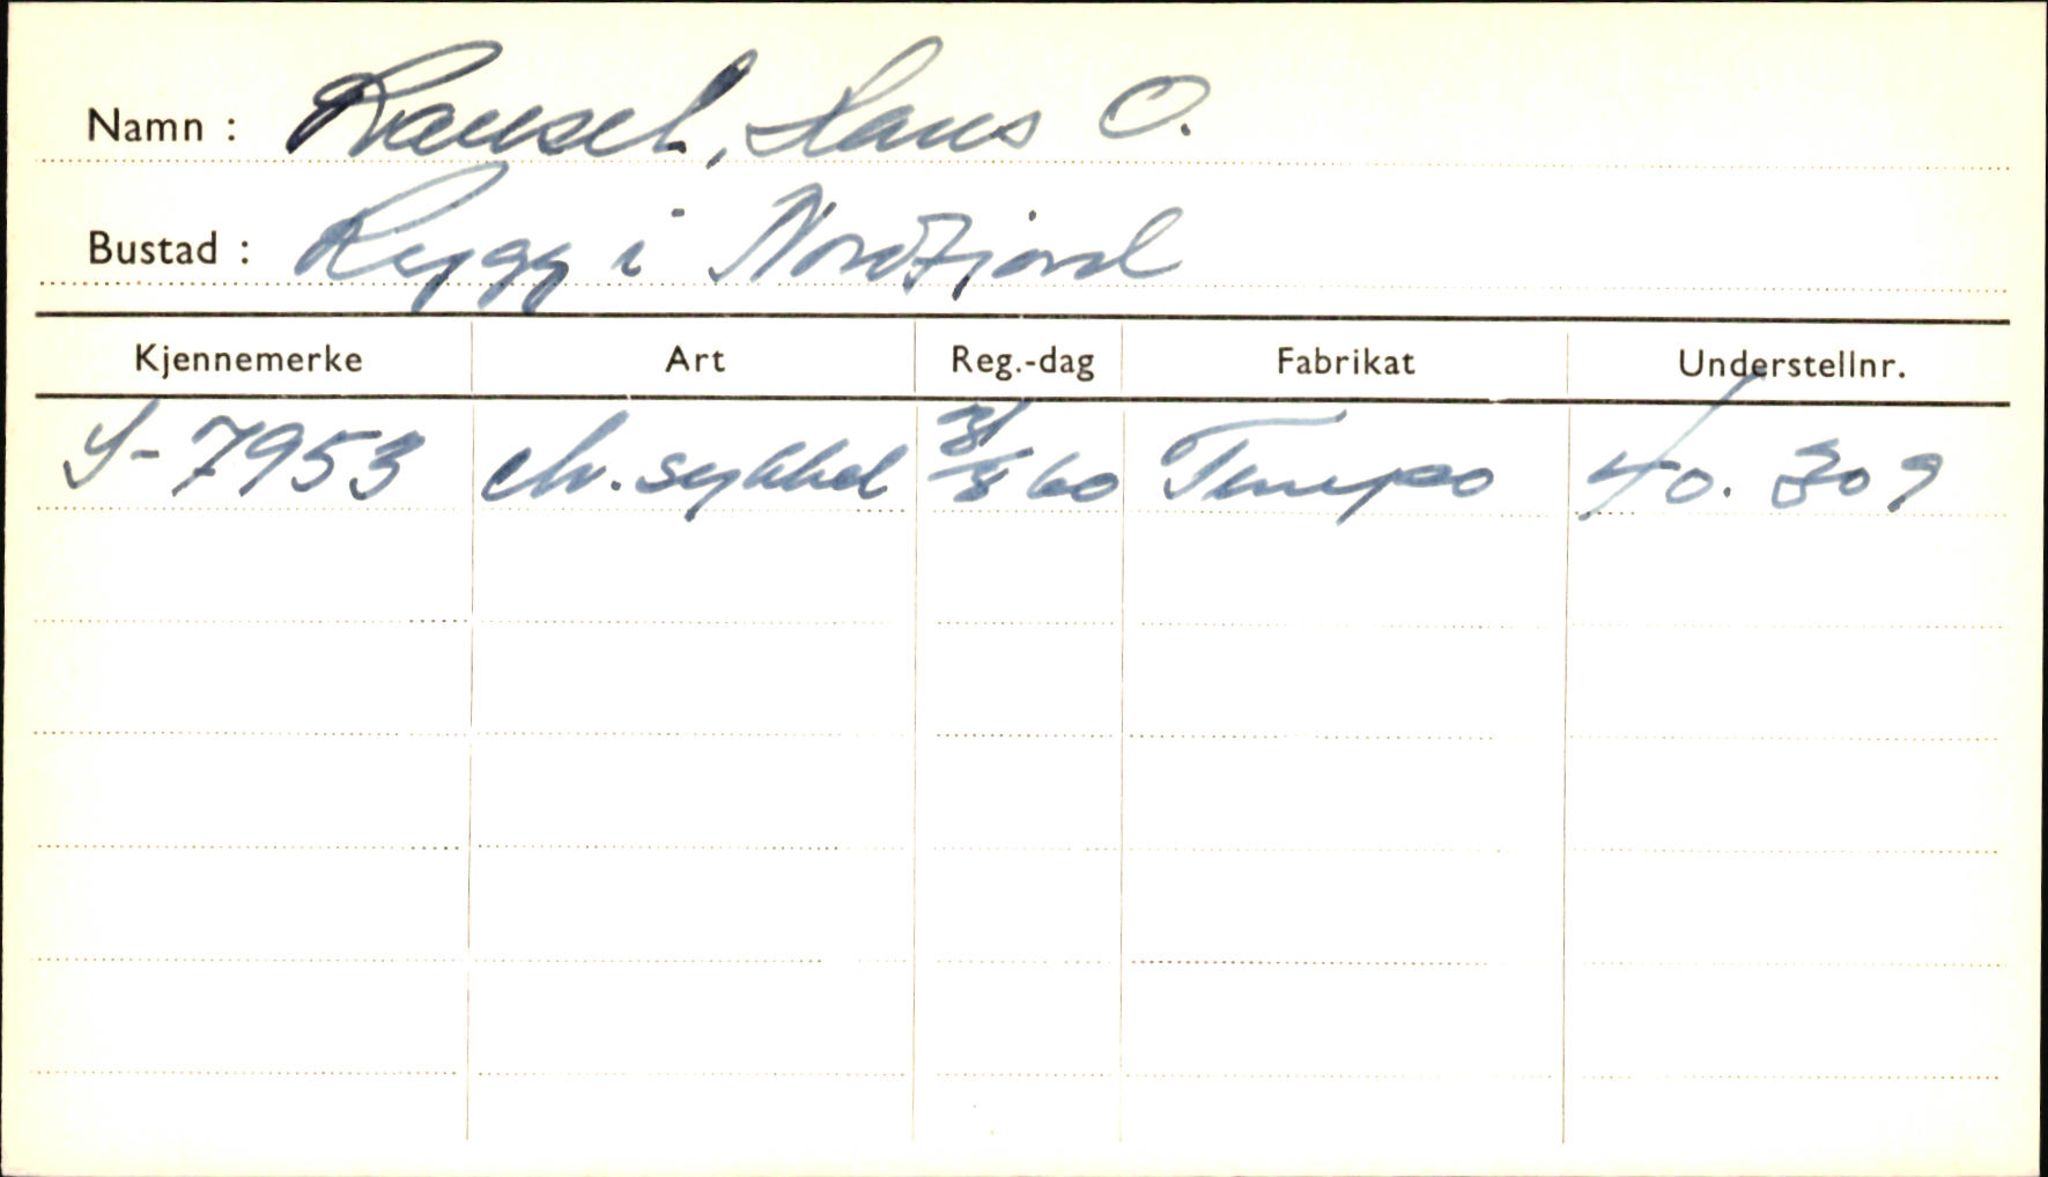 Namn : Ransel, Hans O.
Bustad : Rygg i Nordfjord
Kjennemerke Art Reg.-dag Fabrikat Understellnr.
S-7953 M.sykkel 60 Tempo 40.309